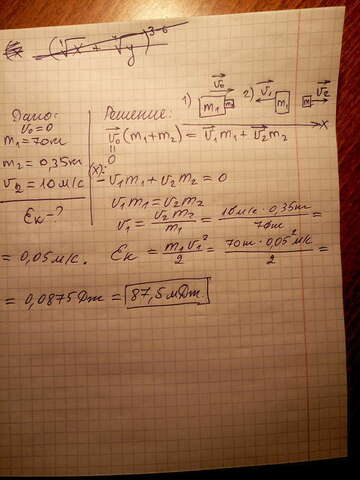 Дано:
v₀ = 0
m₁ = 70кг
m₂ = 0,35кг
v₂ = 10 м/с
Eк - ?
Решение:
1) v₀ m₁ m₂ 2) v₁ m₁ m₂ v₂
x
v₀(m₁+m₂) = v₁m₁ + v₂m₂
0
(x): -v₁m₁ + v₂m₂ = 0
v₁m₁ = v₂m₂
v₁ = v₂m₂ / m₁ = 10м/с · 0,35кг / 70кг =
= 0,05 м/с. Eк = m₁v₁² / 2 = 70кг · 0,05² м/с / 2 =
= 0,0875 Дж = 87,5 мДж.